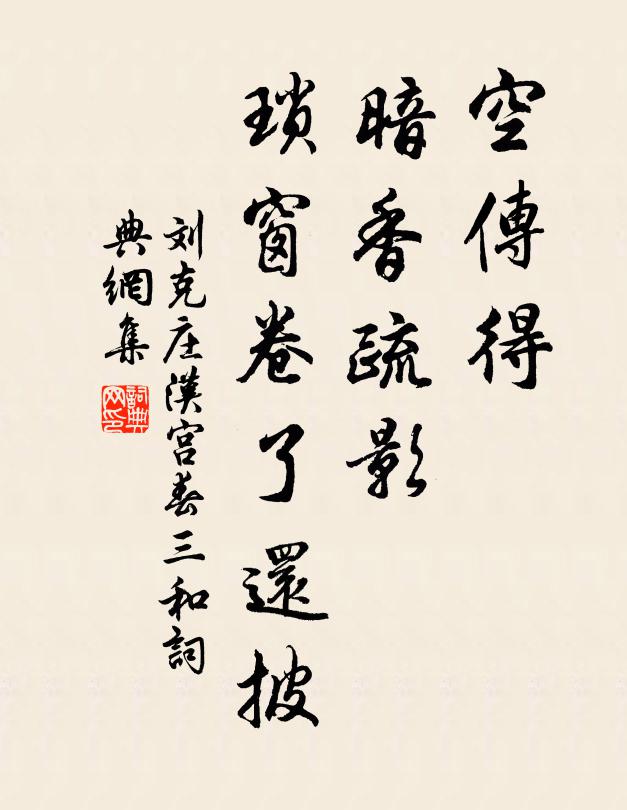 空傳得
暗香疏影
瑣窗卷了還披
刘克庄漢宮春三和詞
典網集
詞典网印